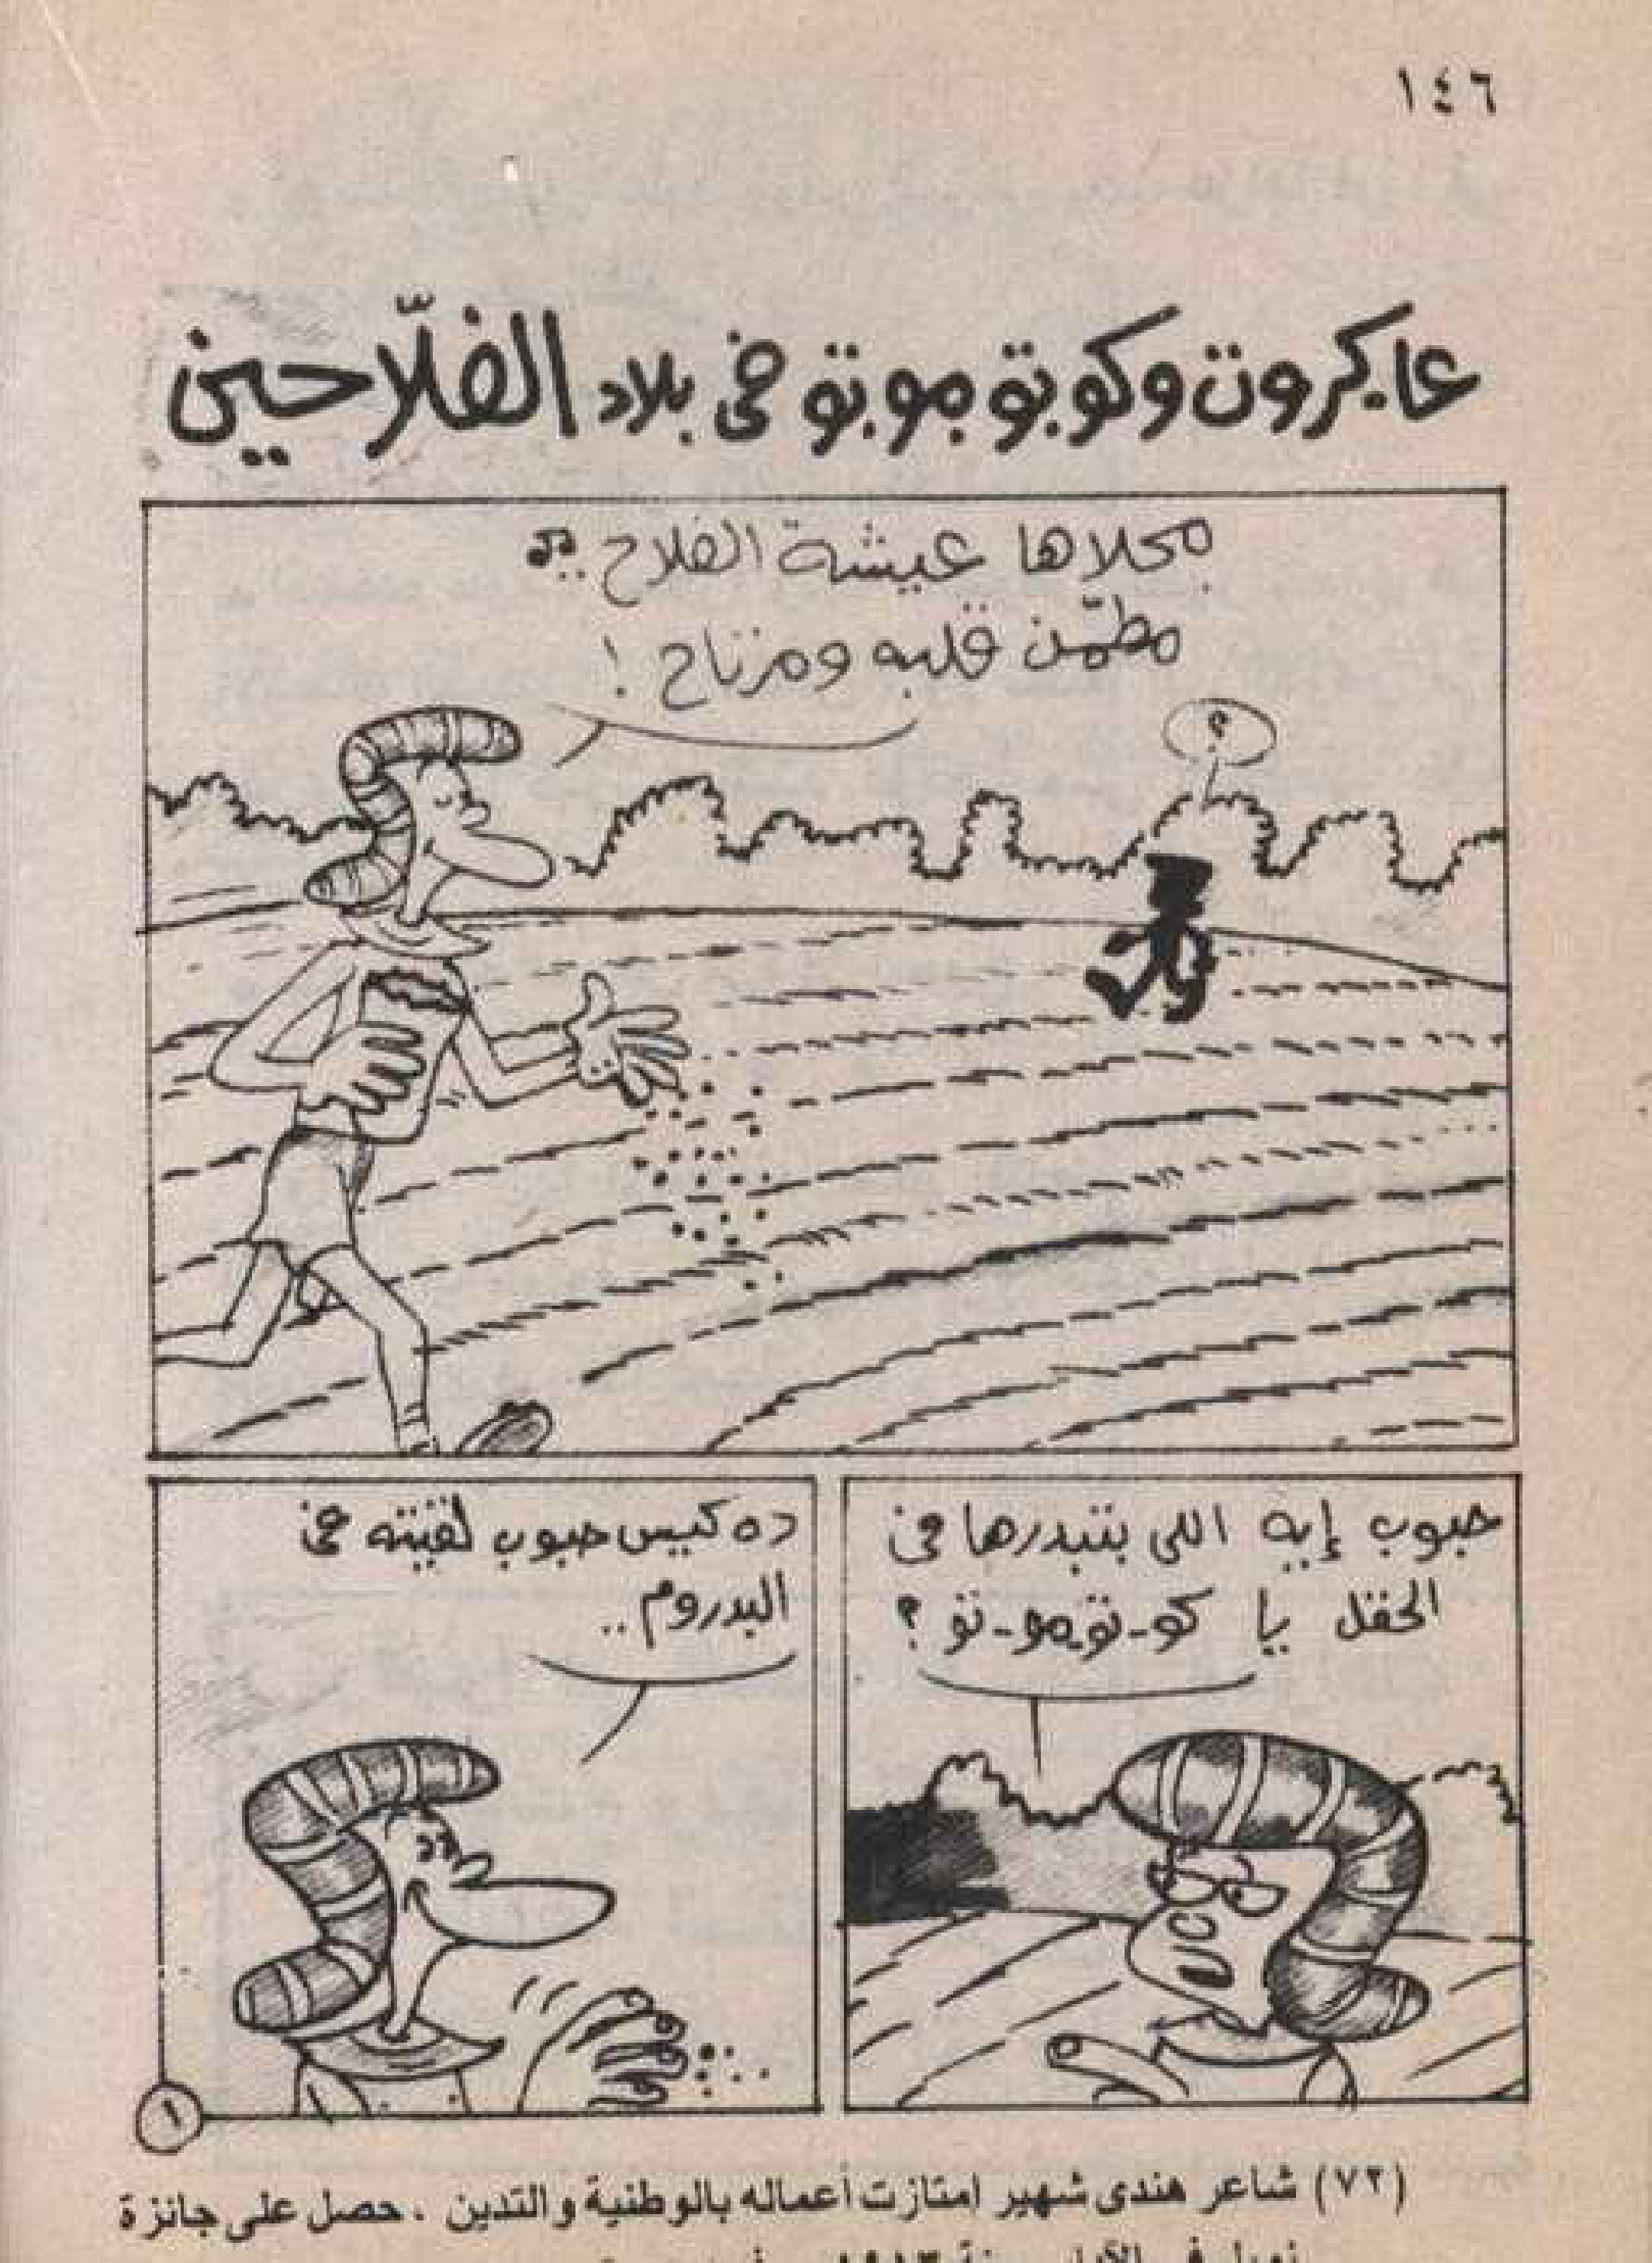 ١٤٦
عابكرون وكوتوموتو فى بلاد الفلّاحين
محلاها عيشة الفلاح..
مطمّن قلبه ومرتاح !
؟
حبوب إيه اللى بتبدرها فى
الحقل يا كو-تو-مو-تو ؟
ده كيس حبوب لقيته فى
البدروم..
١
(٧٢) شاعر هندى شهير امتازت أعماله بالوطنية والتدين . حصل على جائزة